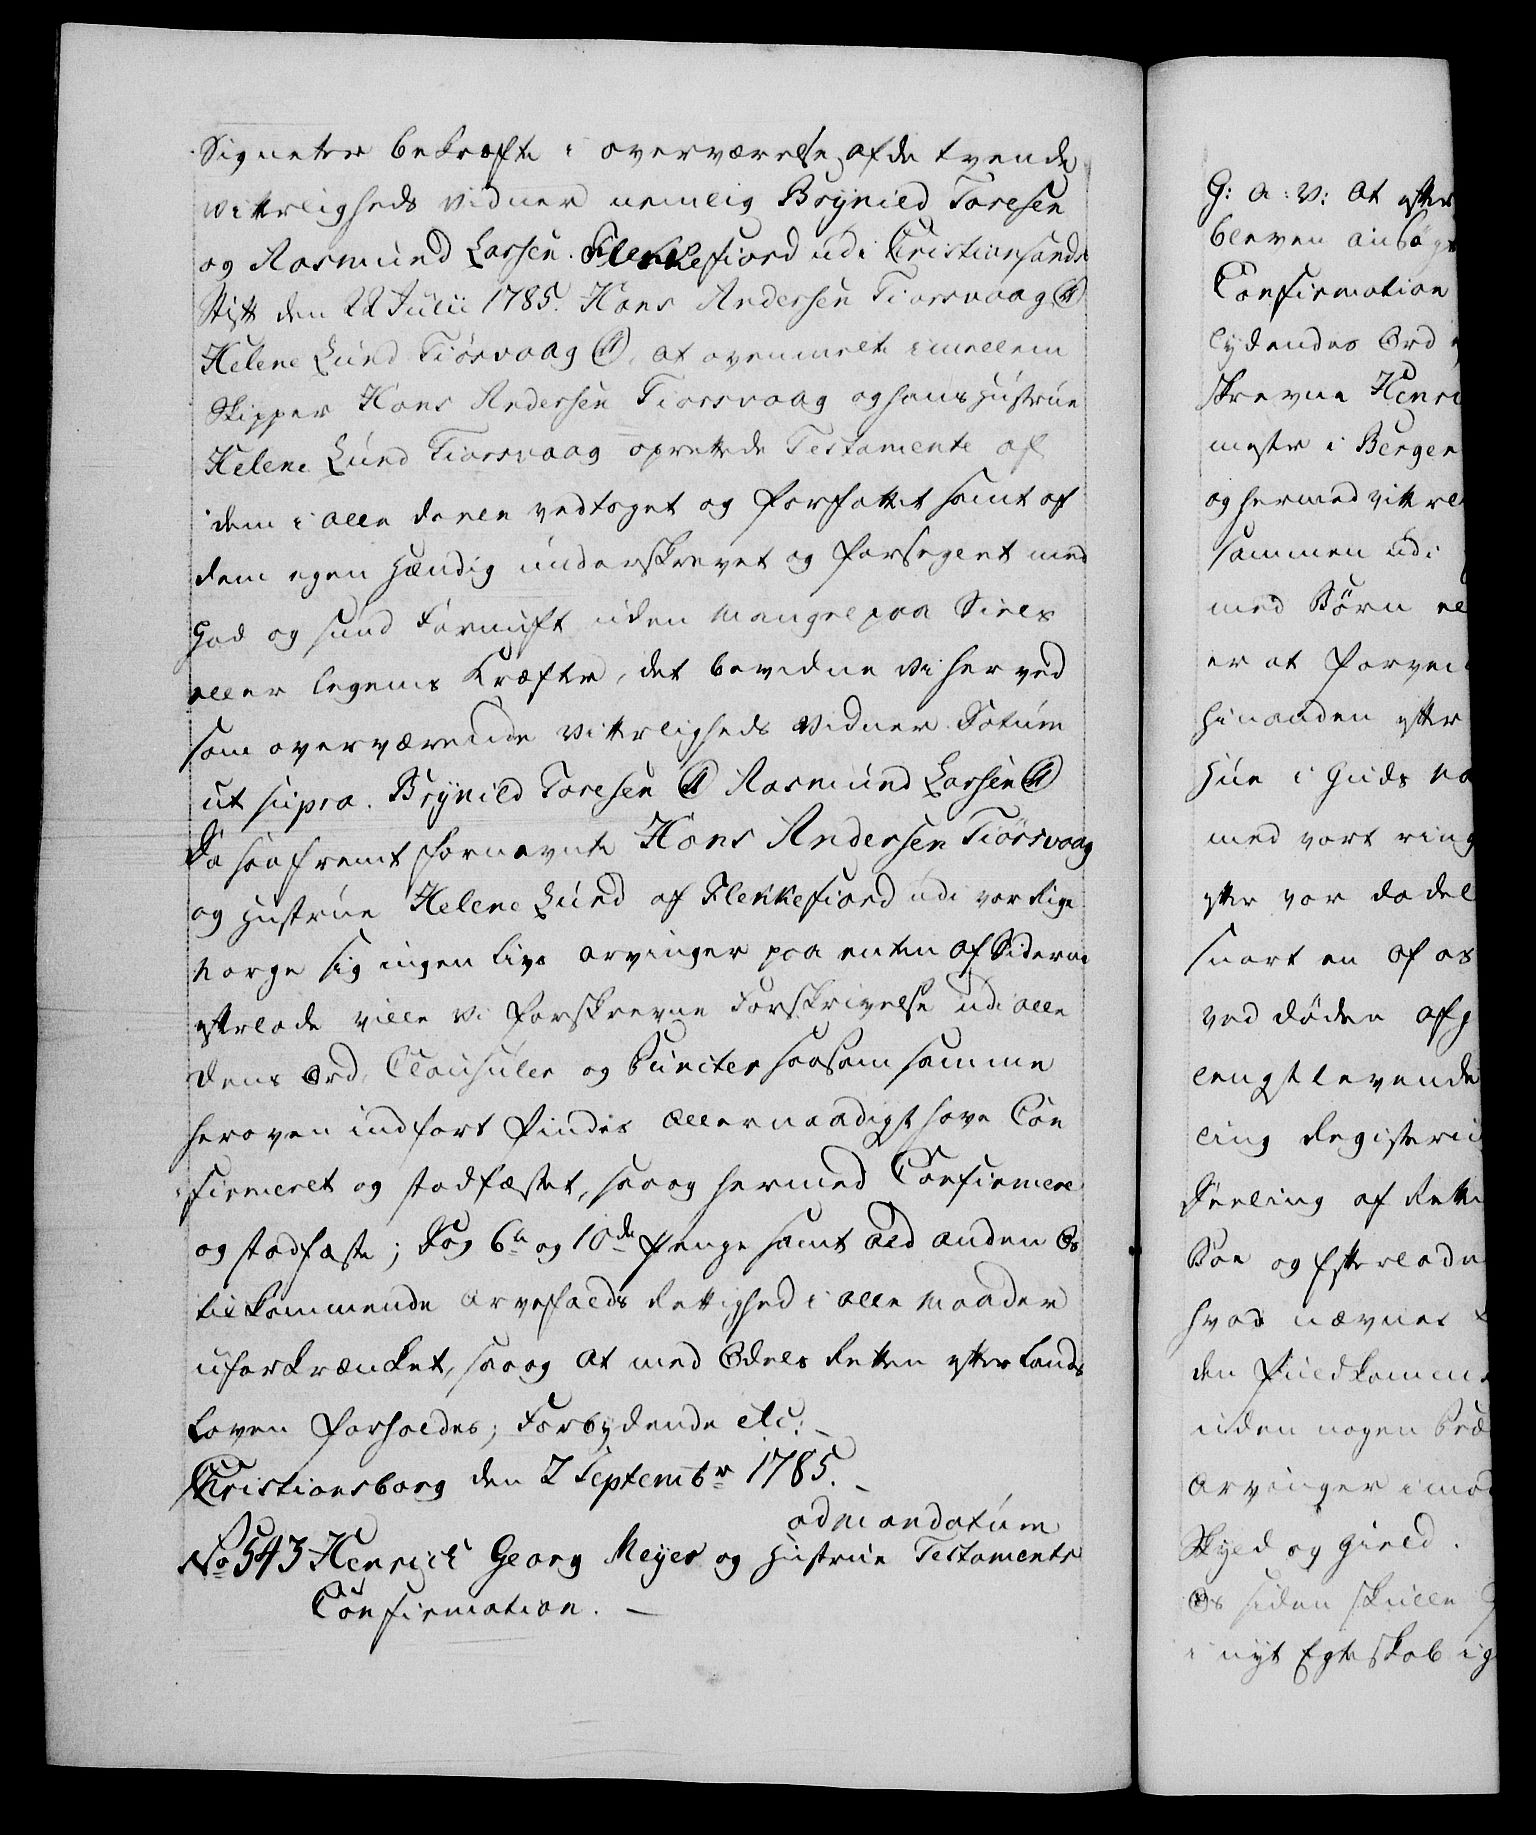 Signeter bekræfte i overværelse af de tvende
vitterligheds vidner nemlig Brynild Toresen
og Aasmund Larsen. Flekkefiord udi Christiansands
Stift den 22 Julii 1785. Hans Andersen Tiorsvaag
Helene Lund Tiörsvaag at ovenmelte imellem
Skipper Hans Andersen Tiorsvaag og hans Hustrue
Helene Lund Tiorsvaag oprettede Testamente af
dem i alle deele vedtaget og forfattet samt af
dem egen hændig underskrevet og forseglet med
god og sund Fornuft uden Mangel paa Siels
eller legems Kræfter, det bevidne vi herved
som overværende vitterligheds vidner. Datum
ut supra. Brynild Toresen Aasmund Larsen
Da saafremt fornævnte Hans Andersen Tiörsvaag
og Hustrue Helene Lund af Flekkefiord udi vor Rige
Norge sig ingen livs arvinger paa enten af Siderne
efterlade ville vi forskrevne Forskrivelse udi alle
dens Ord, Clausuler og Puncter saasom samme
heroven indfort findes allernaadigst have Con
firmeret og stadfæstet, saa og hermed Confirmere
og stadfæste; Dog 6te og 10de penge samt ald anden Os
tilkommende arvefalds Rettighed i alle Maader
uforkrænket, saa og at med Odels Retten efter Lands
Loven forholdes; Forbydende etc:
Christiansborg den 2 Septembr 1785.
ad mandatum
No 543 Henrich Georg Meyer og Hustrue Testaments
Confirmation.
G: a: v: at efter
bleven ansögt
Confirmation
lydendes Ord
skrevne Henri
mester i Bergen
og hermed vitterl
sammen udi
med Börn el
er at forven
hinanden efter
Hun i Guds Na
med vort ring
efter vor dödel
snart en af os
ved döden afg
lengstlevende
ling Registeri
Deeling af Rette
Boe og Efterladen
hvad nævnes
den fuldkommen
uden nogen
Arvinger imod
Skyld og Gield.
Os siden skulle
i nyt Egteskab ig